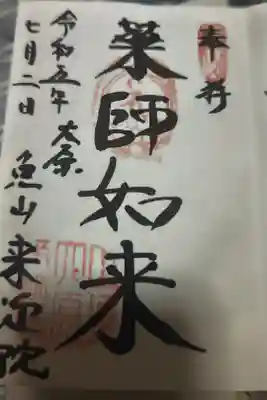 奉拝
薬師如来
大原
魚山 来迎院
令和五年
七月二日